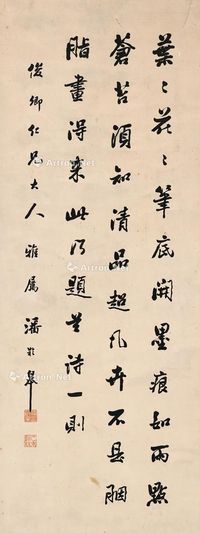 葉〻花〻筆底開墨痕如雨點
蒼苔須知清品超凡卉不是胭
脂畫得來此乃題吴詩一則
俊卿仁兄大人雅屬 潘齡皋